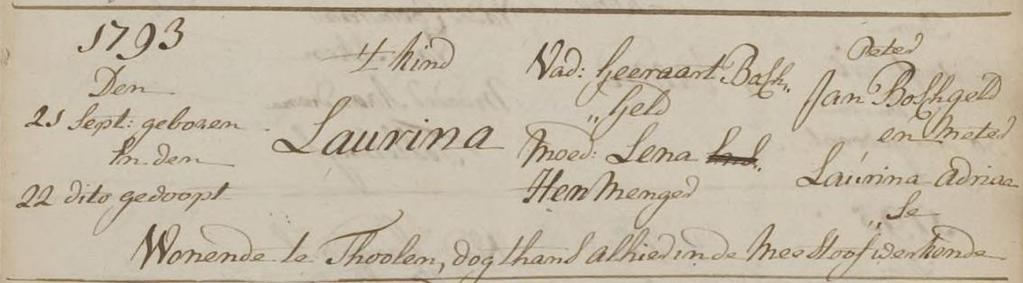 1793
Den
21 Sept: geboren
En den
22 dito gedoopt
't kind
Laurina
Vad: Geeraart Bosh„
„geld
Moed: Lena
Hen Menger
Peter
Jan Boshgeld
en Meter
Laurina Adriaa„
„se
Wonende te Thoolen, dog thans alhier in de Meestoof werkende